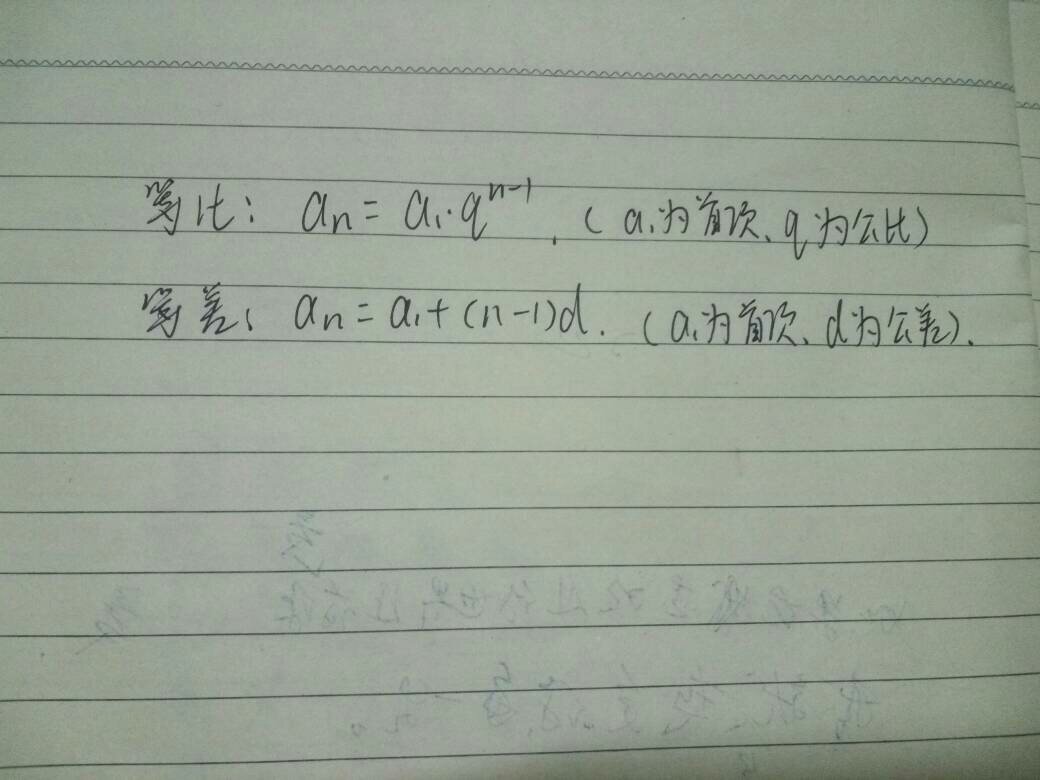 等比: aₙ = a₁·qⁿ⁻¹. (a₁为首项、q为公比)
等差: aₙ = a₁+(n-1)d. (a₁为首项、d为公差).